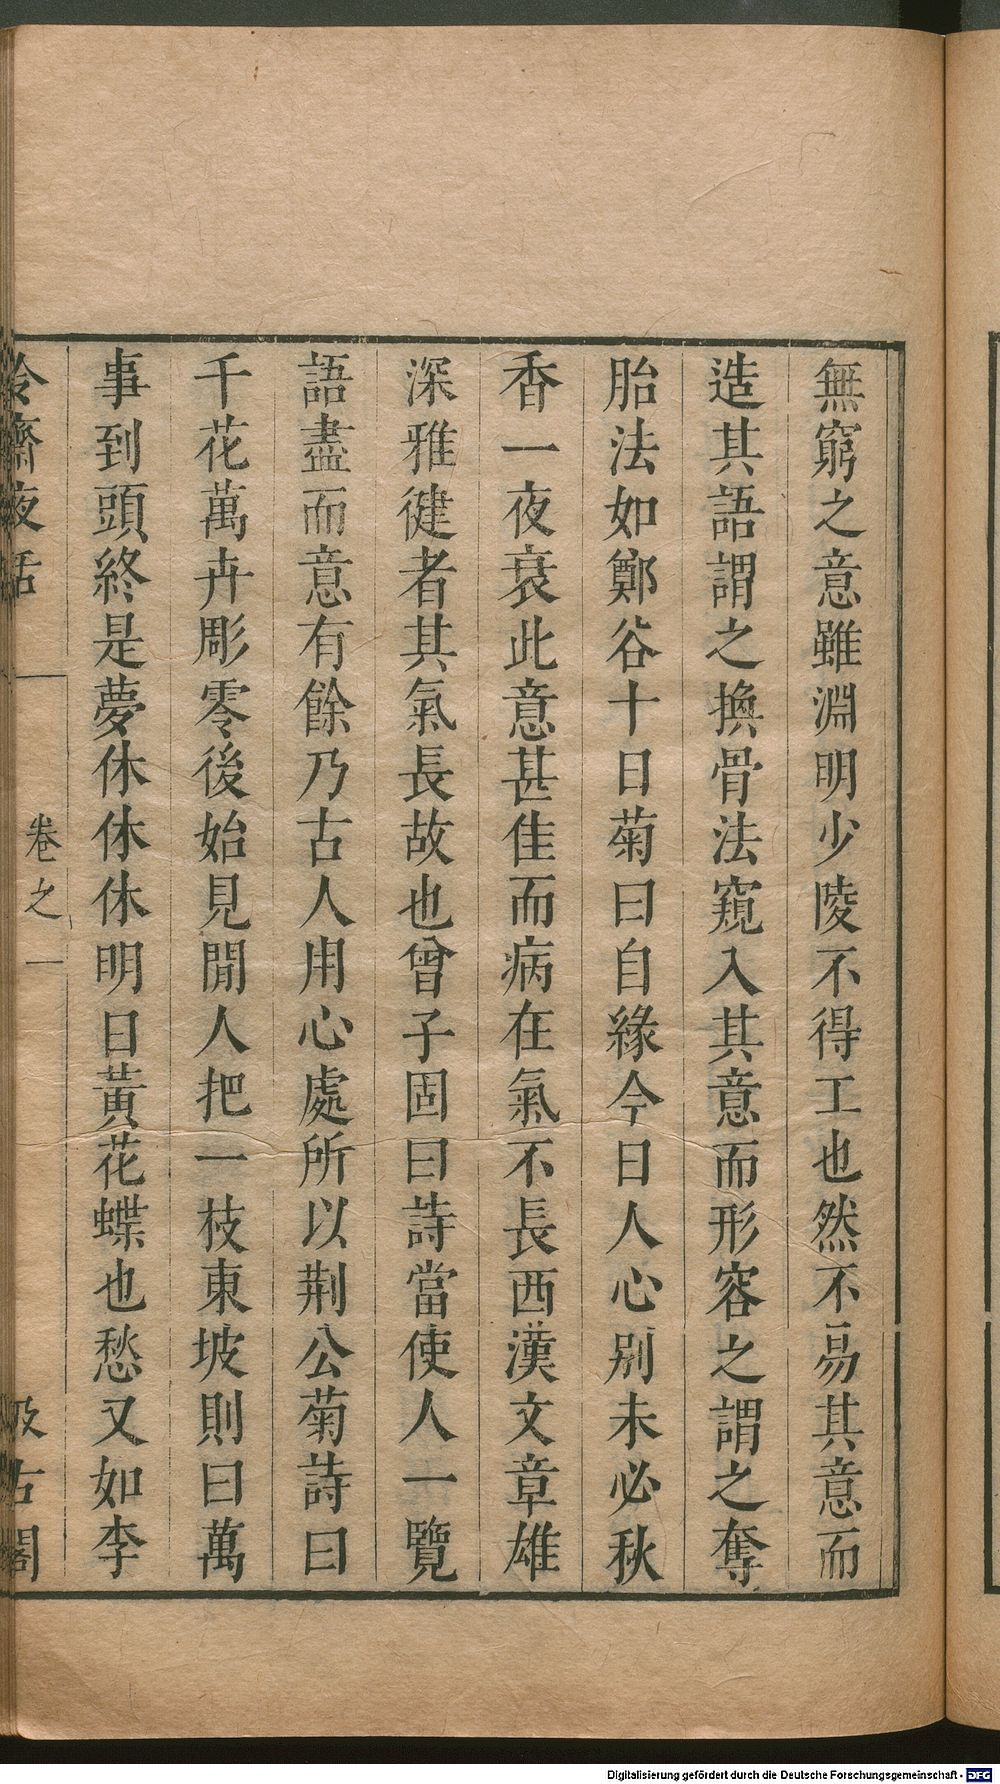 無窮之意雖淵明少陵不得工也然不易其意而
造其語謂之換骨法窺入其意而形容之謂之奪
胎法如鄭谷十日菊曰自緣今日人心別未必秋
香一夜衰此意甚佳而病在氣不長西漢文章雄
深雅健者其氣長故也曾子固曰詩當使人一覽
語盡而意有餘乃古人用心處所以荆公菊詩曰
千花萬卉彫零後始見閒人把一枝東坡則曰萬
事到頭終是夢休休休明日黃花蝶也愁又如李
冷齋夜話
卷之一
汲古閣
Digitalisierung gefördert durch die Deutsche Forschungsgemeinschaft - DFG